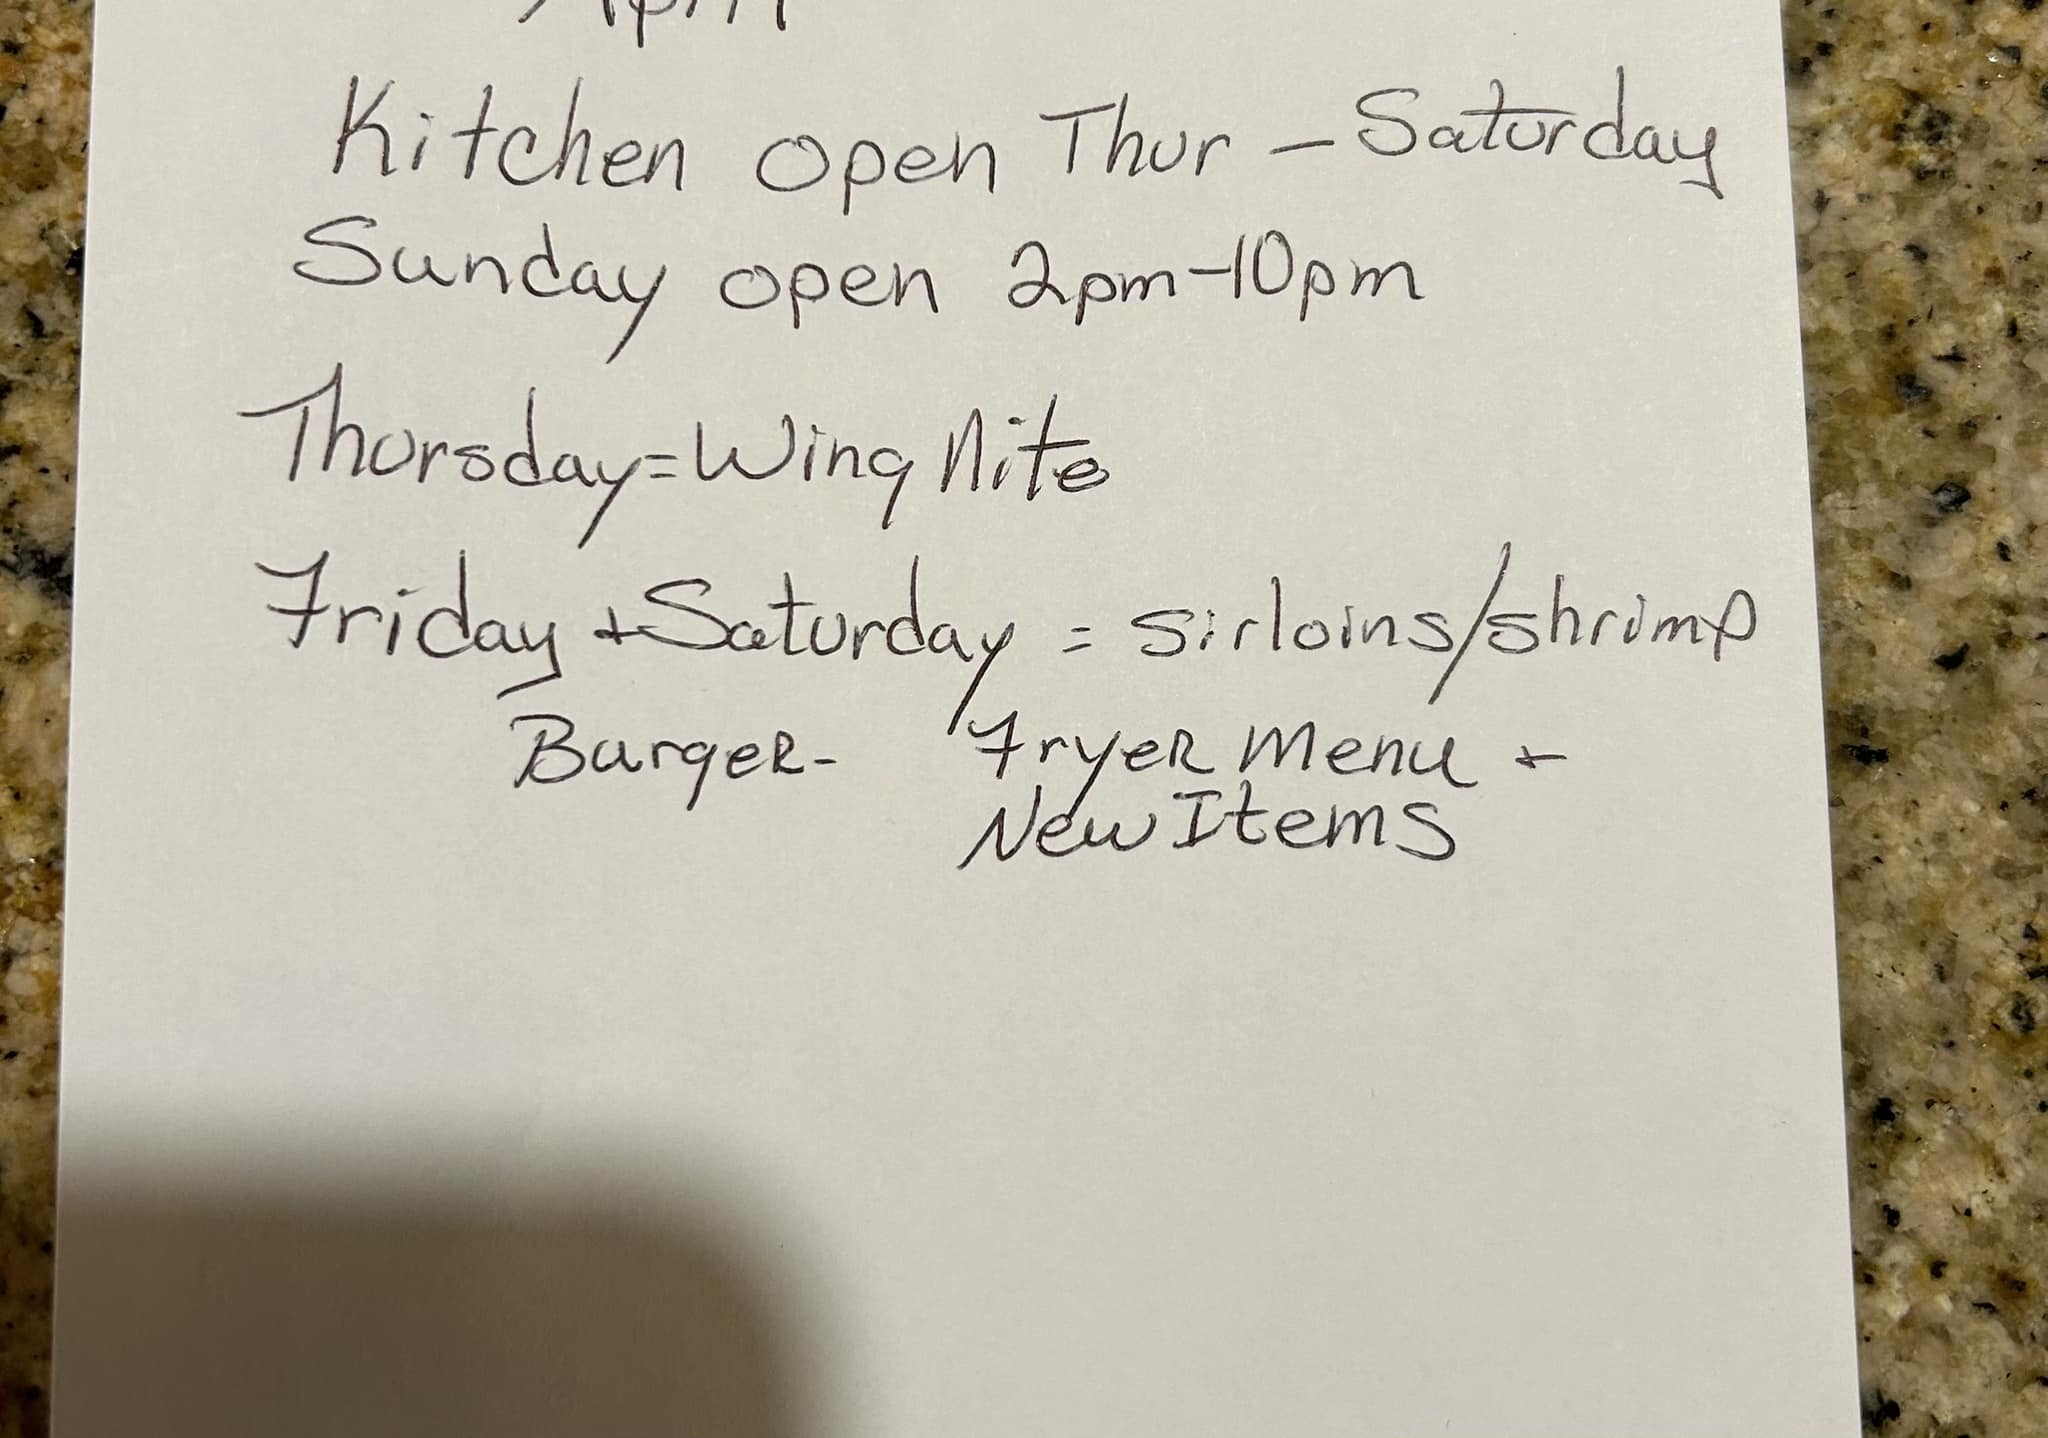 April
Kitchen open Thur - Saturday
Sunday open 2pm-10pm
Thursday = Wing Nite
Friday + Saturday = sirloins/shrimp
Burger - Fryer Menu +
New Items